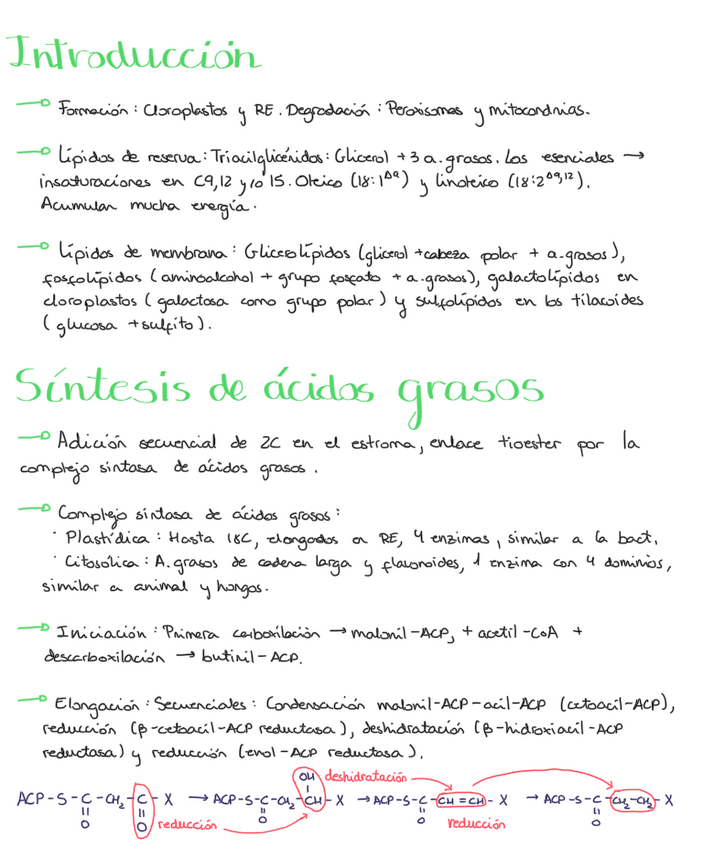 Introducción
Formación: Cloroplastos y RE. Degradación: Peroxisomas y mitocondrias.
Lípidos de reserva: Triacilglicéridos: Glicerol + 3 a. grasos. Los esenciales →
insaturaciones en C9,12 y/o 15. Oleico (18:1^Δ9) y linoleico (18:2^Δ9,12).
Acumulan mucha energía.
Lípidos de membrana: Glicerolípidos (glicerol + cabeza polar + a. grasos),
fosfolípidos (aminoalcohol + grupo fosfato + a. grasos), galactolípidos en
cloroplastos (galactosa como grupo polar) y sulfolípidos en los tilacoides
(glucosa + sulfito).
Síntesis de ácidos grasos
Adición secuencial de 2C en el estroma, enlace tioester por la
complejo sintasa de ácidos grasos.
Complejo sintasa de ácidos grasos:
· Plastídica: Hasta 18C, elongados en RE, 4 enzimas, similar a la bact.
· Citosólica: A. grasos de cadena larga y flavonoides, 1 enzima con 4 dominios,
similar a animal y hongos.
Iniciación: Primera carboxilación → malonil-ACP, + acetil-CoA +
descarboxilación → butinil-ACP.
Elongación: Secuenciales: Condensación malonil-ACP-acil-ACP (cetoacil-ACP),
reducción (β-cetoacil-ACP reductasa), deshidratación (β-hidroxiacil-ACP
reductasa) y reducción (enol-ACP reductasa).
OH deshidratación
ACP-S-C-CH₂-C-X → ACP-S-C-CH₂-CH-X → ACP-S-C-CH=CH-X → ACP-S-C-CH₂-CH₂-X
O O reducción O O reducción O